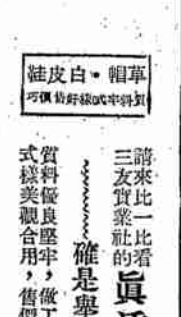 草帽・白皮鞋
質料牢式樣好售價巧
請來比一比看
三友實業社的
確是舉
質料優良堅牢，做工
式樣美觀合用，售價